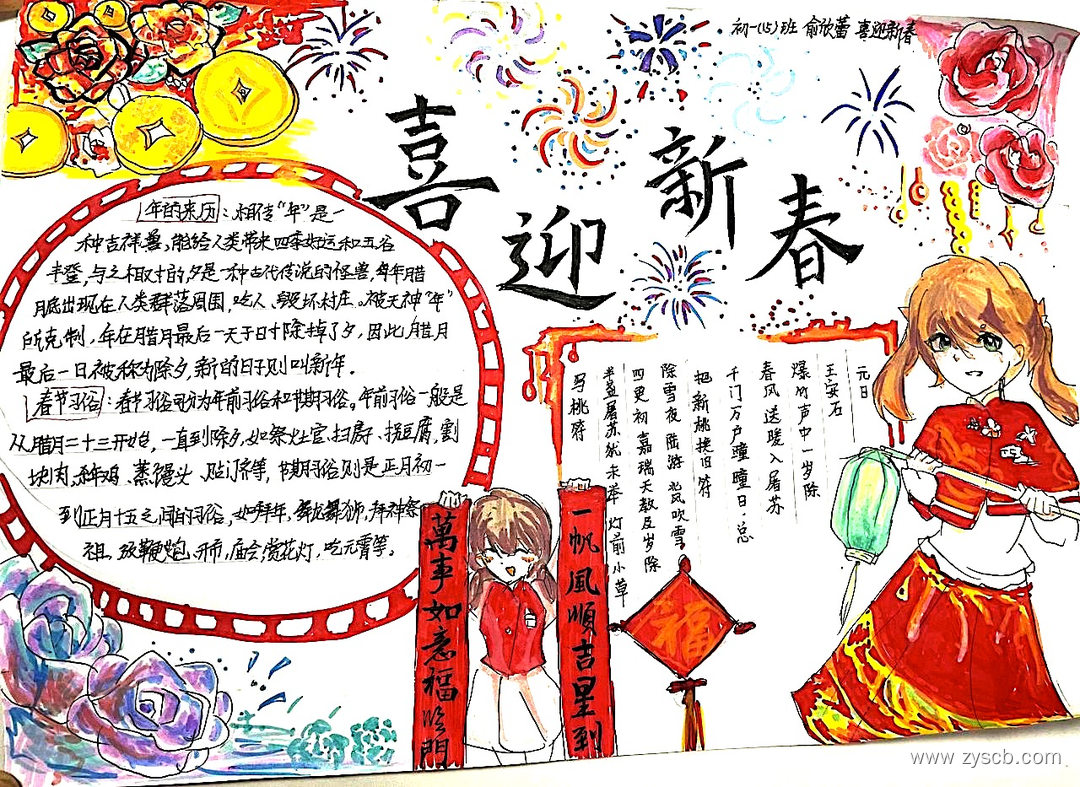 初一(15)班 俞欣蕾 喜迎新春
喜迎新春
年的来历：相传“年”是一
种吉祥兽，能给人类带来四季好运和五谷
丰登，与之相对的，夕是一种古代传说的怪兽，每年腊
月底出现在人类群落周围，吃人、毁坏村庄。被天神“年”
所克制，年在腊月最后一天于时除掉了夕，因此腊月
最后一日被称为除夕，新的日子则叫新年。
春节习俗：春节习俗可分为年前习俗和节期习俗。年前习俗一般是
从腊月二十三开始，一直到除夕，如祭灶官、扫房、揭豆腐，割
块肉、蒸馒头、贴门等，节期习俗则是正月初一
到正月十五之间的习俗，如拜年，舞龙舞狮，拜神祭
祖、放鞭炮、开市，庙会，赏花灯，吃元宵等。
元日
王安石
爆竹声中一岁除
春风送暖入屠苏
千门万户曈曈日，总
把新桃换旧符
除雪夜 陆游 北风吹雪
四更初 嘉瑞天教及岁除
半盏屠苏犹未举 灯前小草
写桃符
一帆風順吉星到
萬事如意福臨門
福
www.zyscb.com